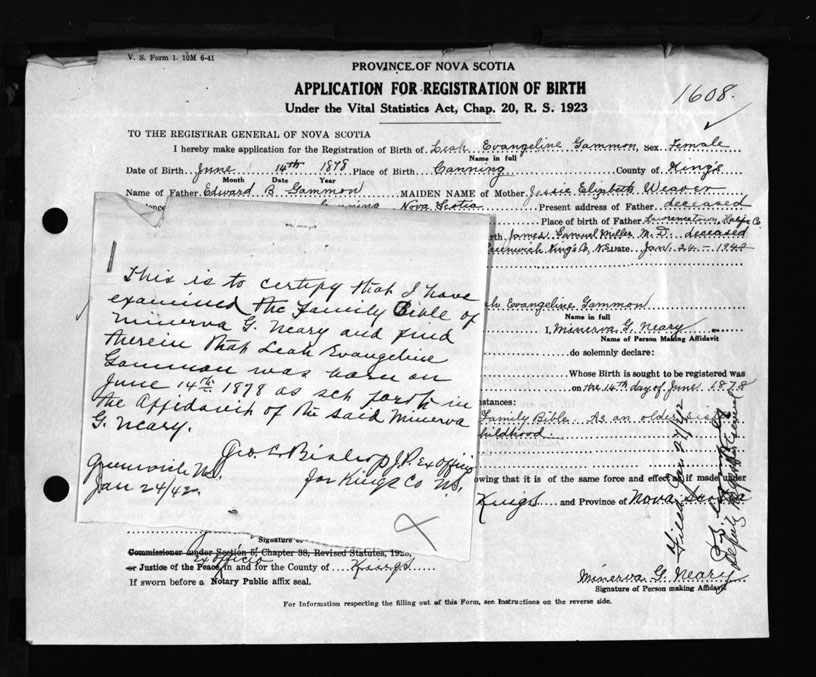 V. S. Form 1. 10M 6-41
PROVINCE OF NOVA SCOTIA
APPLICATION FOR REGISTRATION OF BIRTH
Under the Vital Statistics Act, Chap. 20, R. S. 1923
1608.
TO THE REGISTRAR GENERAL OF NOVA SCOTIA
I hereby make application for the Registration of Birth of Leah Evangeline Gammon, Sex Female
Name in full
Date of Birth June 14th 1878 Place of Birth Canning County of King's
Month Date Year
Name of Father Edward B. Gammon MAIDEN NAME of Mother Jessie Elizabeth Weaver
Nova Scotia Present address of Father deceased
Place of birth of Father Lawrencetown Halifx Co.
James Samuel Miller M.D. deceased
Greenwich King's Co, N.S. Date Jan. 24 - 1942
Evangeline Gammon
Name in full
I, Minerva G. Neary
Name of Person Making Affidavit
do solemnly declare:
Whose Birth is sought to be registered was
on the 14th day of June 1878
Family Bible. As an older
childhood.
owing that it is of the same force and effect as if made under
Kings and Province of Nova Scotia
This is to certify that I have
examined the Family Bible of
Minerva G. Neary and find
therein that Leah Evangeline
Gammon was born on
June 14th 1878 as set forth in
the Affidavit of the said Minerva
G. Neary.
Geo. E. Bishop J.P. Ex Officio
for Kings Co N.S.
Greenwich N.S.
Jan 24/42
Filed Jan 27/42
Deputy Registrar General
Signature of
Commissioner under Section 5, Chapter 38, Revised Statutes, 1923,
Ex Officio
or Justice of the Peace in and for the County of Kings
If sworn before a Notary Public affix seal.
Minerva G. Neary
Signature of Person making Affidavit
For Information respecting the filling out of this Form, see Instructions on the reverse side.